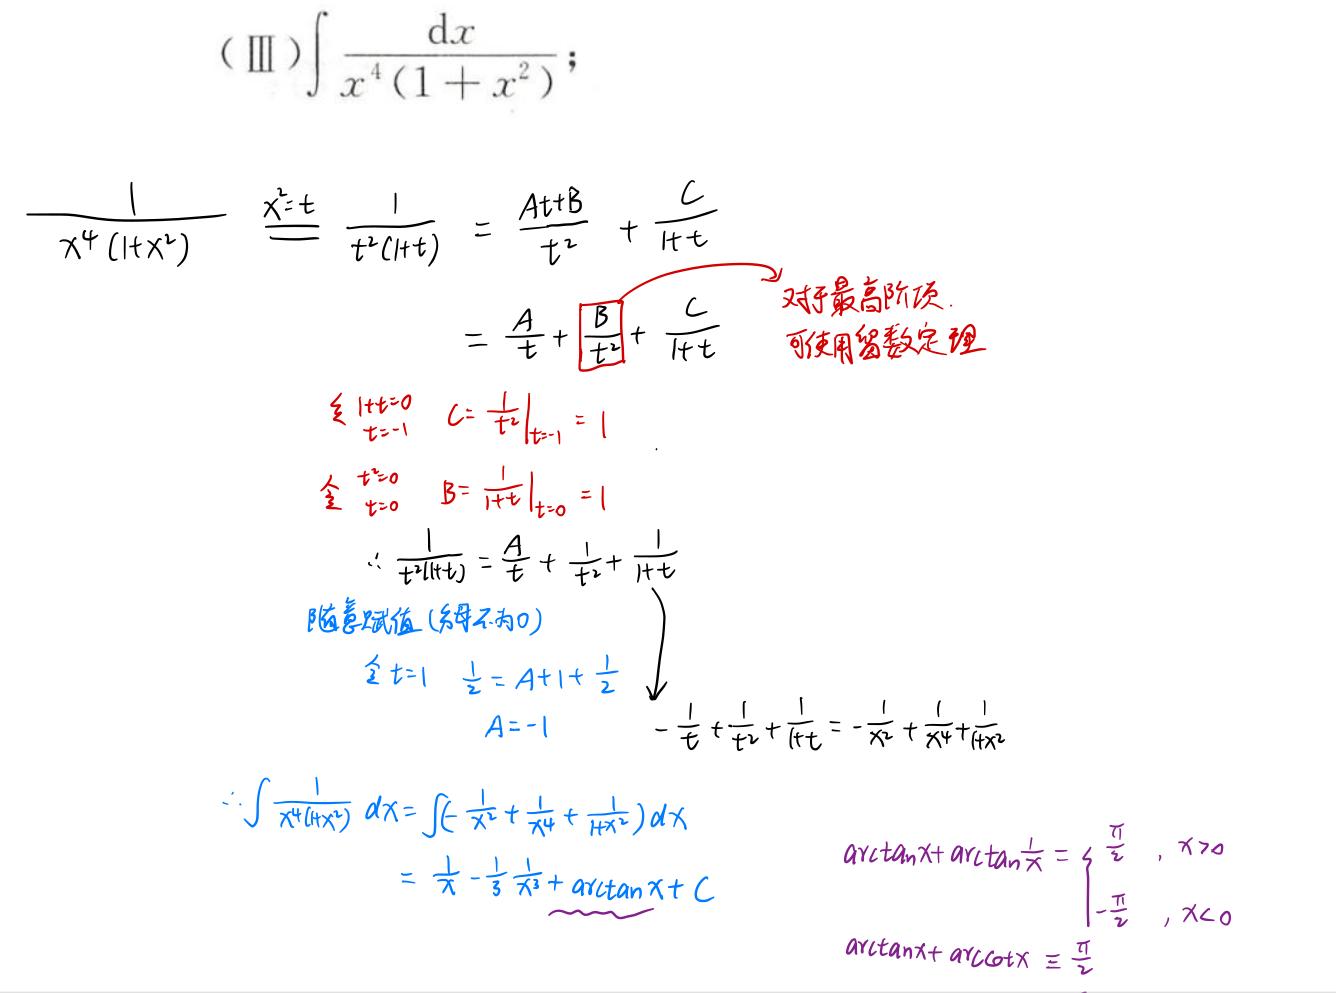 (Ⅲ)∫ dx/(x⁴(1+x²));
1/(x⁴(1+x²)) x²=t 1/(t²(1+t)) = (At+B)/t² + C/(1+t)
= A/t + B/t² + C/(1+t)
对于最高阶项.
可使用留数定理
令 1+t=0 t=-1 C= 1/t² |t=-1 = 1
令 t²=0 t=0 B= 1/(1+t) |t=0 = 1
∴ 1/(t²(1+t)) = A/t + 1/t² + 1/(1+t)
随意赋值(分母不为0)
令 t=1 1/2 = A+1+1/2
A=-1
-1/t + 1/t² + 1/(1+t) = -1/x² + 1/x⁴ + 1/(1+x²)
∴∫ 1/(x⁴(1+x²)) dx = ∫(-1/x² + 1/x⁴ + 1/(1+x²))dx
= 1/x - 1/3 1/x³ + arctanx + C
arctanx + arctan 1/x = { π/2 , x>0
-π/2 , x<0
arctanx + arccotx ≡ π/2